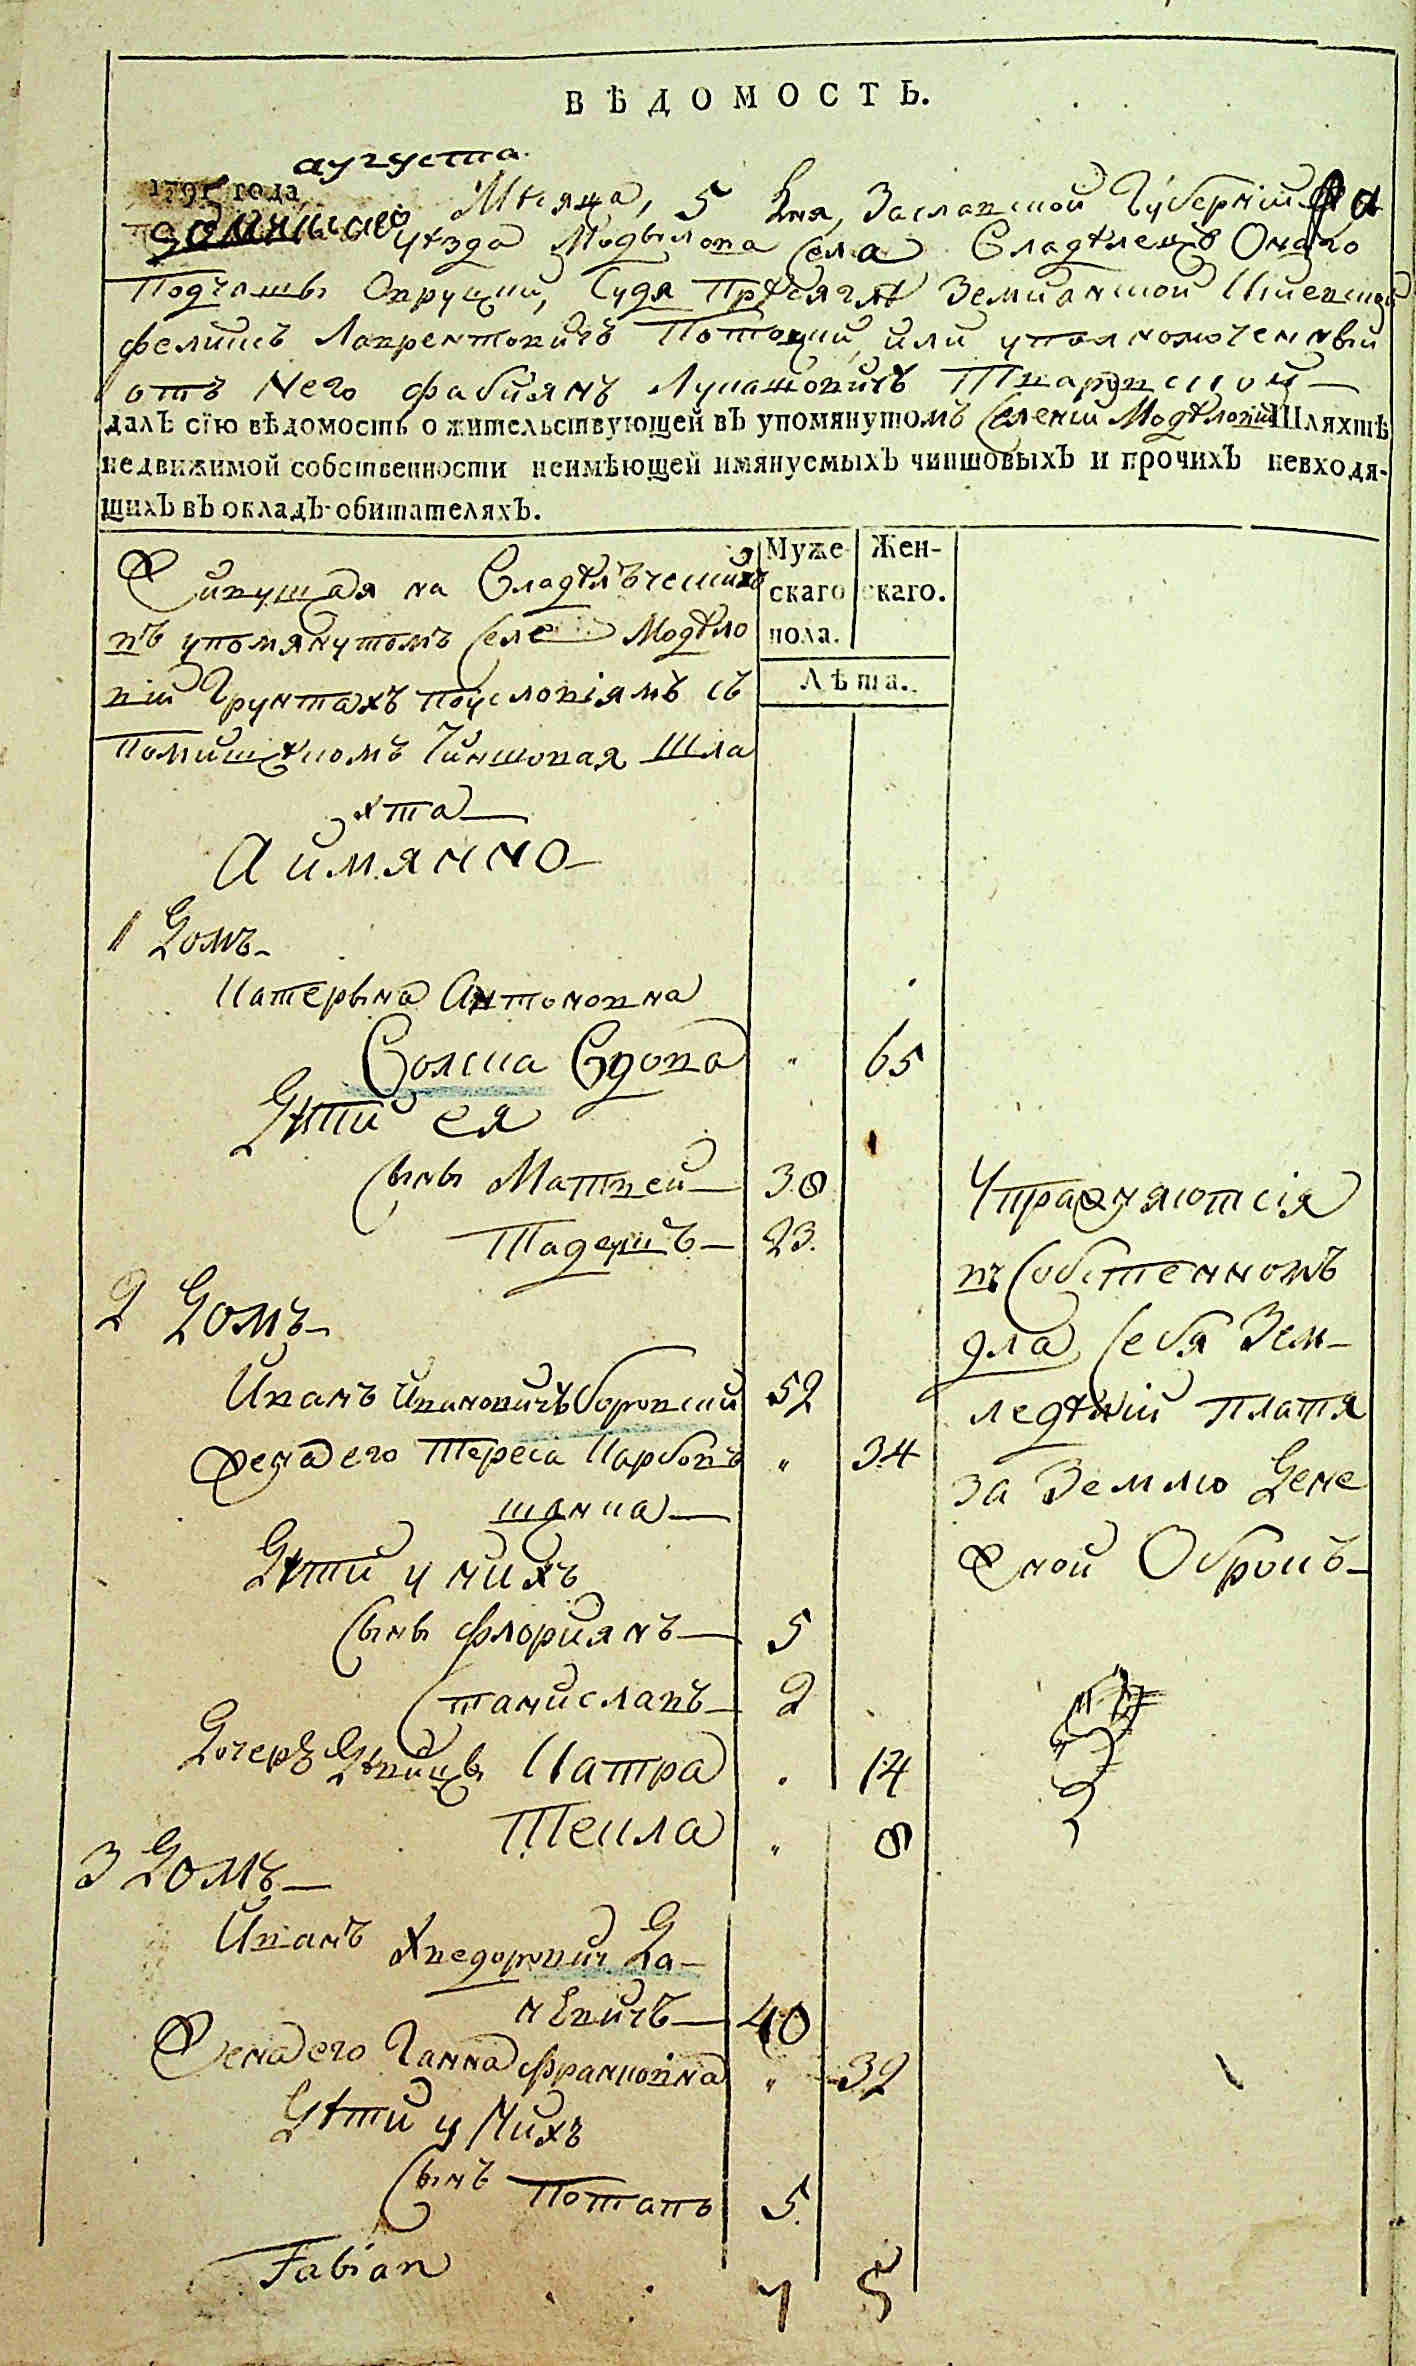 ВѢДОМОСТЬ.
августа
1795 года Мѣсяца, 5 Дня, Заславской Губернiи
уѣзда Модылова села Владѣлецъ Онаго
Подчаший Овруцкий, Судя Земианской Киевской
Феликсъ Лаврентовичъ Потоцкий, или уполномоченный
отъ Него Фабиянъ Лукашовичъ
далъ сїю вѣдомость о жительствующей въ упомянутомъ Селении Модѣловки Шляхтѣ
недвижимой собственности неимѣющей имянуемыхъ чиншовыхъ и прочихъ невходя-
щихъ въ окладъ обитателяхъ.
Муже-
скаго
пола.
Жен-
скаго.
Лѣта.
Живущая на Владѣльческихъ
въ упомянутомъ Селе Модѣло
вки Грунтахъ поусловіямъ съ
Помищикомъ Чиншовая Шла
хта
А имянно
1 Домъ
Катерына Антоновна
Волска Вдова " 65
Дѣти ея
Сыны Матвей 38
Тадеушъ 23.
Упражняются
въ Собственномъ
для Себя Зем-
ледѣлии платя
за Землю Дене
жной Оброкъ
2 Домъ
Иванъ Ивановичъ Боровский 52
Жена его Тереса " 34
Дѣти у нихъ
Сыны Флориянъ 5
Станиславъ 2
Дочеръ Дѣвицы Катра . 14
Текла " 8
3 Домъ
Иванъ Хведорович Да-
невичъ 40
Жена его Ганна Франковна " 32
Дѣти у Нихъ
Сынъ Потапъ 5.
Fabian
7 5